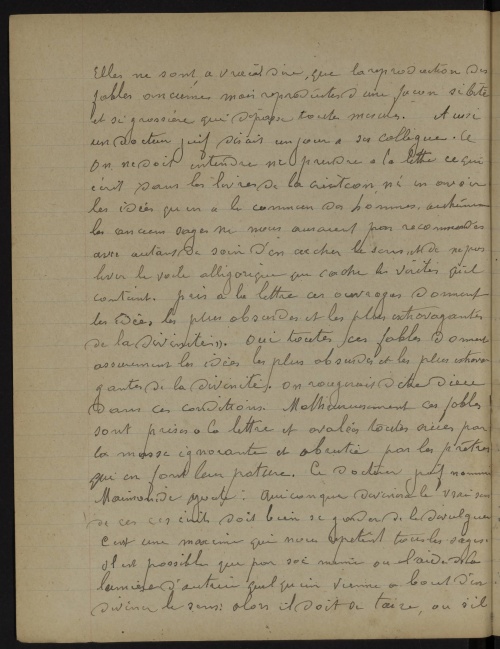 Elles ne sont a vrai dire, que la reproduction des
fables anciennes mais reproduites d'une façon si bête
et si grossière qui dépasse toute mesure. Aussi
un docteur juif disait un jour a ses collègue. Ce
On ne doit entendre ne prendre a la lettre ce qui
écrit dans les livres de la création, ni en avoir
les idées qu'en a le commun des hommes. autrement
les anciens sages ne nous auraient pas recommandés
avec autant de soin d'en cacher le sens et de ne pas
lever le voile allégorique qui cache les vérités qu'il
contient. pris a la lettre ces ouvrages donnent
les idées les plus absurdes et les plus extravagantes
de la divinité ». Oui toutes ces fables donnent
assurément les idées les plus absurdes et les plus extrava
gantes de la divinité. on rougirais d'être Dieu
Dans ces conditions. Malheureusement ces fables
sont prises a la lettre et avalées toutes crues par
la masse ignorante et abrutie par les prêtres
qui en font leur pature. Ce docteur juif nommé
Maimonide ajoute : Quiconque devinera le vrai sens
de ces écrits doit bien se garder de le divulguer
C'est une maxime que nous repetent tous les sages.
il est possible que par soi même ou l'aide de la
lumière d'autrui quelqu'un vienne a bout d'en
deviner le sens: alors il doit se taire, ou s'il